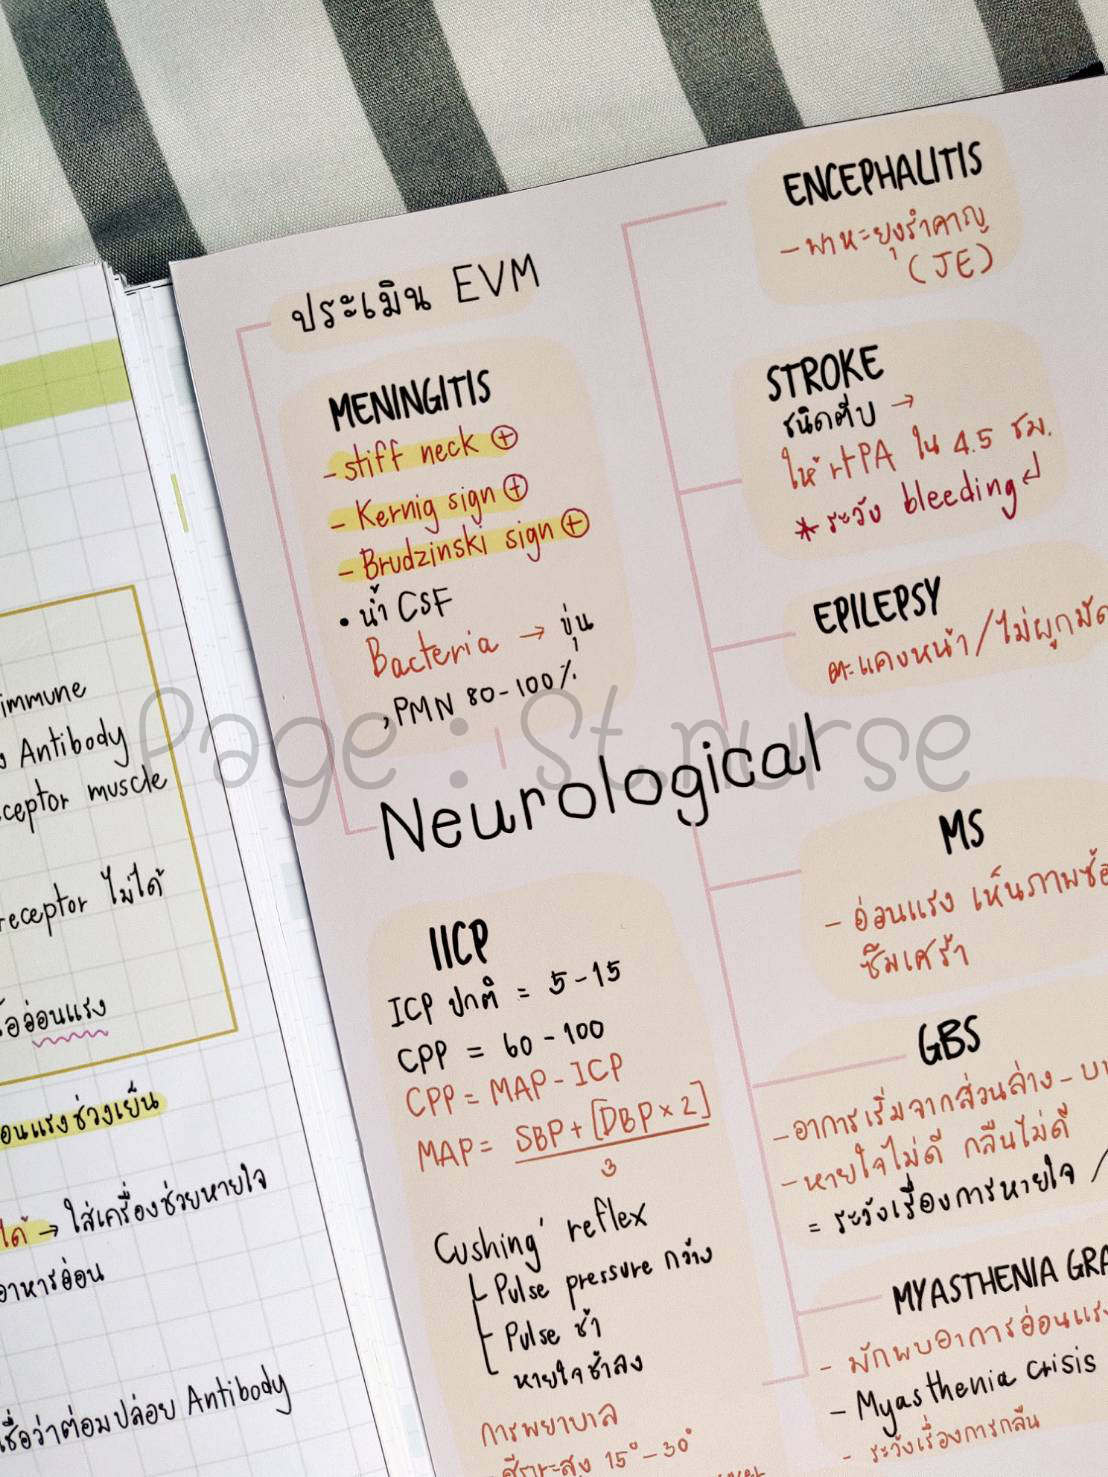 immune
Antibody
ceptor muscle
receptor ไม่ได้
อ่อนแรง
อนแรงช่วงเย็น
ได้ → ใส่เครื่องช่วยหายใจ
อาหารอ่อน
ชื่อว่าต่อมปล่อย Antibody
ประเมิน EVM
MENINGITIS
- stiff neck ⊕
- Kernig sign ⊕
- Brudzinski sign ⊕
• น้ำ CSF
Bacteria → ขุ่น
, PMN 80-100%
Page : St.nurse
Neurological
IICP
ICP ปกติ = 5-15
CPP = 60-100
CPP = MAP - ICP
MAP = SBP + [DBP × 2]
3
Cushing' reflex
Pulse pressure กว้าง
Pulse ช้า
หายใจช้าลง
การพยาบาล
ศีรษะสูง 15° - 30°
ENCEPHALITIS
- พาหะยุงรำคาญ
(JE)
STROKE
ชนิดตีบ →
ให้ rtPA ใน 4.5 ชม.
* ระวัง bleeding ↲
EPILEPSY
ตะแคงหน้า / ไม่ผูกมัด
MS
- อ่อนแรง เห็นภาพซ้อ
ซึมเศร้า
GBS
- อาการเริ่มจากส่วนล่าง - บ
- หายใจไม่ดี กลืนไม่ดี
= ระวังเรื่องการหายใจ /
MYASTHENIA GRA
- มักพบอาการอ่อนแรง
- Myasthenia crisis
- ระวังเรื่องการกลืน